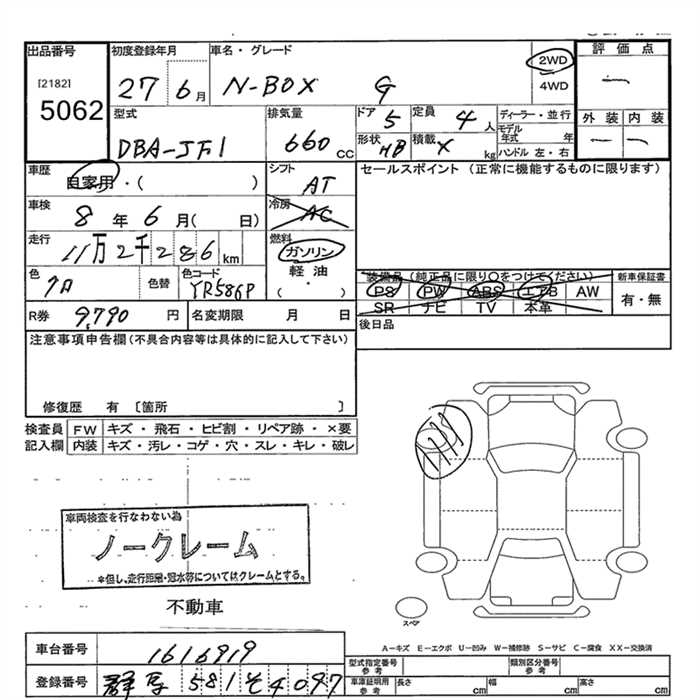 出品番号
[2182]
5062
初度登録年月
27 6月
車名・グレード
N-BOX G
2WD
4WD
評価点
一
型式
DBA-JF1
排気量
660 cc
ドア
5
定員
4人
形状
HB
積載
X kg
ディーラー・並行
モデル年式 年
ハンドル 左・右
外装 内装
一 一
車歴
自家用・( )
シフト
AT
セールスポイント(正常に機能するものに限ります)
車検
8年 6月( 日)
冷房
AC
走行
11万2千286km
燃料
ガソリン
軽油
( ・ )
色
クロ
色替
色コード
YR586P
装備品(純正品に限り○をつけてください)
PS PW ABS エアB AW
SR ナビ TV 本革
新車保証書
有・無
R券 9,790円
名変期限 月 日
後日品
注意事項申告欄(不具合内容等は具体的に記入して下さい)
修復歴 有 〔箇所 〕
検査員記入欄
FW キズ・飛石・ヒビ割・リペア跡・×要
内装 キズ・汚レ・コゲ・穴・スレ・キレ・破レ
車両検査を行なわない為
ノークレーム
※但し、走行距離・冠水等についてはクレームとする。
不動車
スペア
A-キズ E-エクボ U-凹み W-補修跡 S-サビ C-腐食 XX-交換済
車台番号 1616919
登録番号 群馬 581 そ 4097
型式指定番号 参考
類別区分番号 参考
車庫証明用 参考
長さ cm 幅 cm 高さ cm